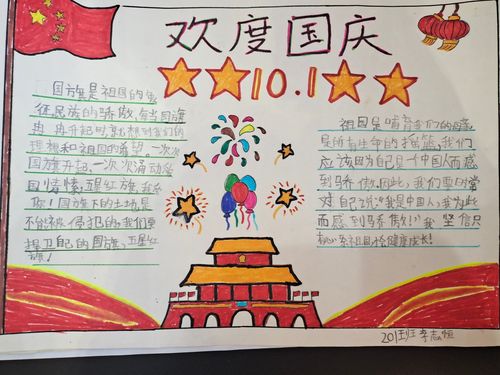 欢度国庆
10.1
国旗是祖国的象
征民族的骄傲,每当国旗
冉冉升起时,就想到我们的
理想和祖国的希望。一次次
国旗升起,一次次涌动爱
国情愫,五星红旗,我爱
你!国旗下的土地是
不能被侵犯的,我们要
捍卫自己的国旗,五星红
旗!
祖国是哺育我们的母亲,
是所有生命的摇篮,我们
应该因为自己是一个中国人而感
到骄傲。因此,我们要时常
对自己说:“我是中国人,我为此
而感到骄傲!”我坚信只
心系祖国健康成长!
201班 李志恒